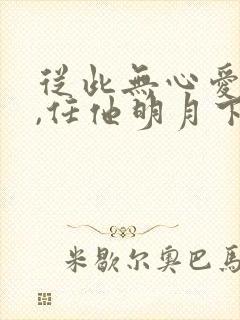 從此無心愛
,任他明月下
米歇尔奥巴馬